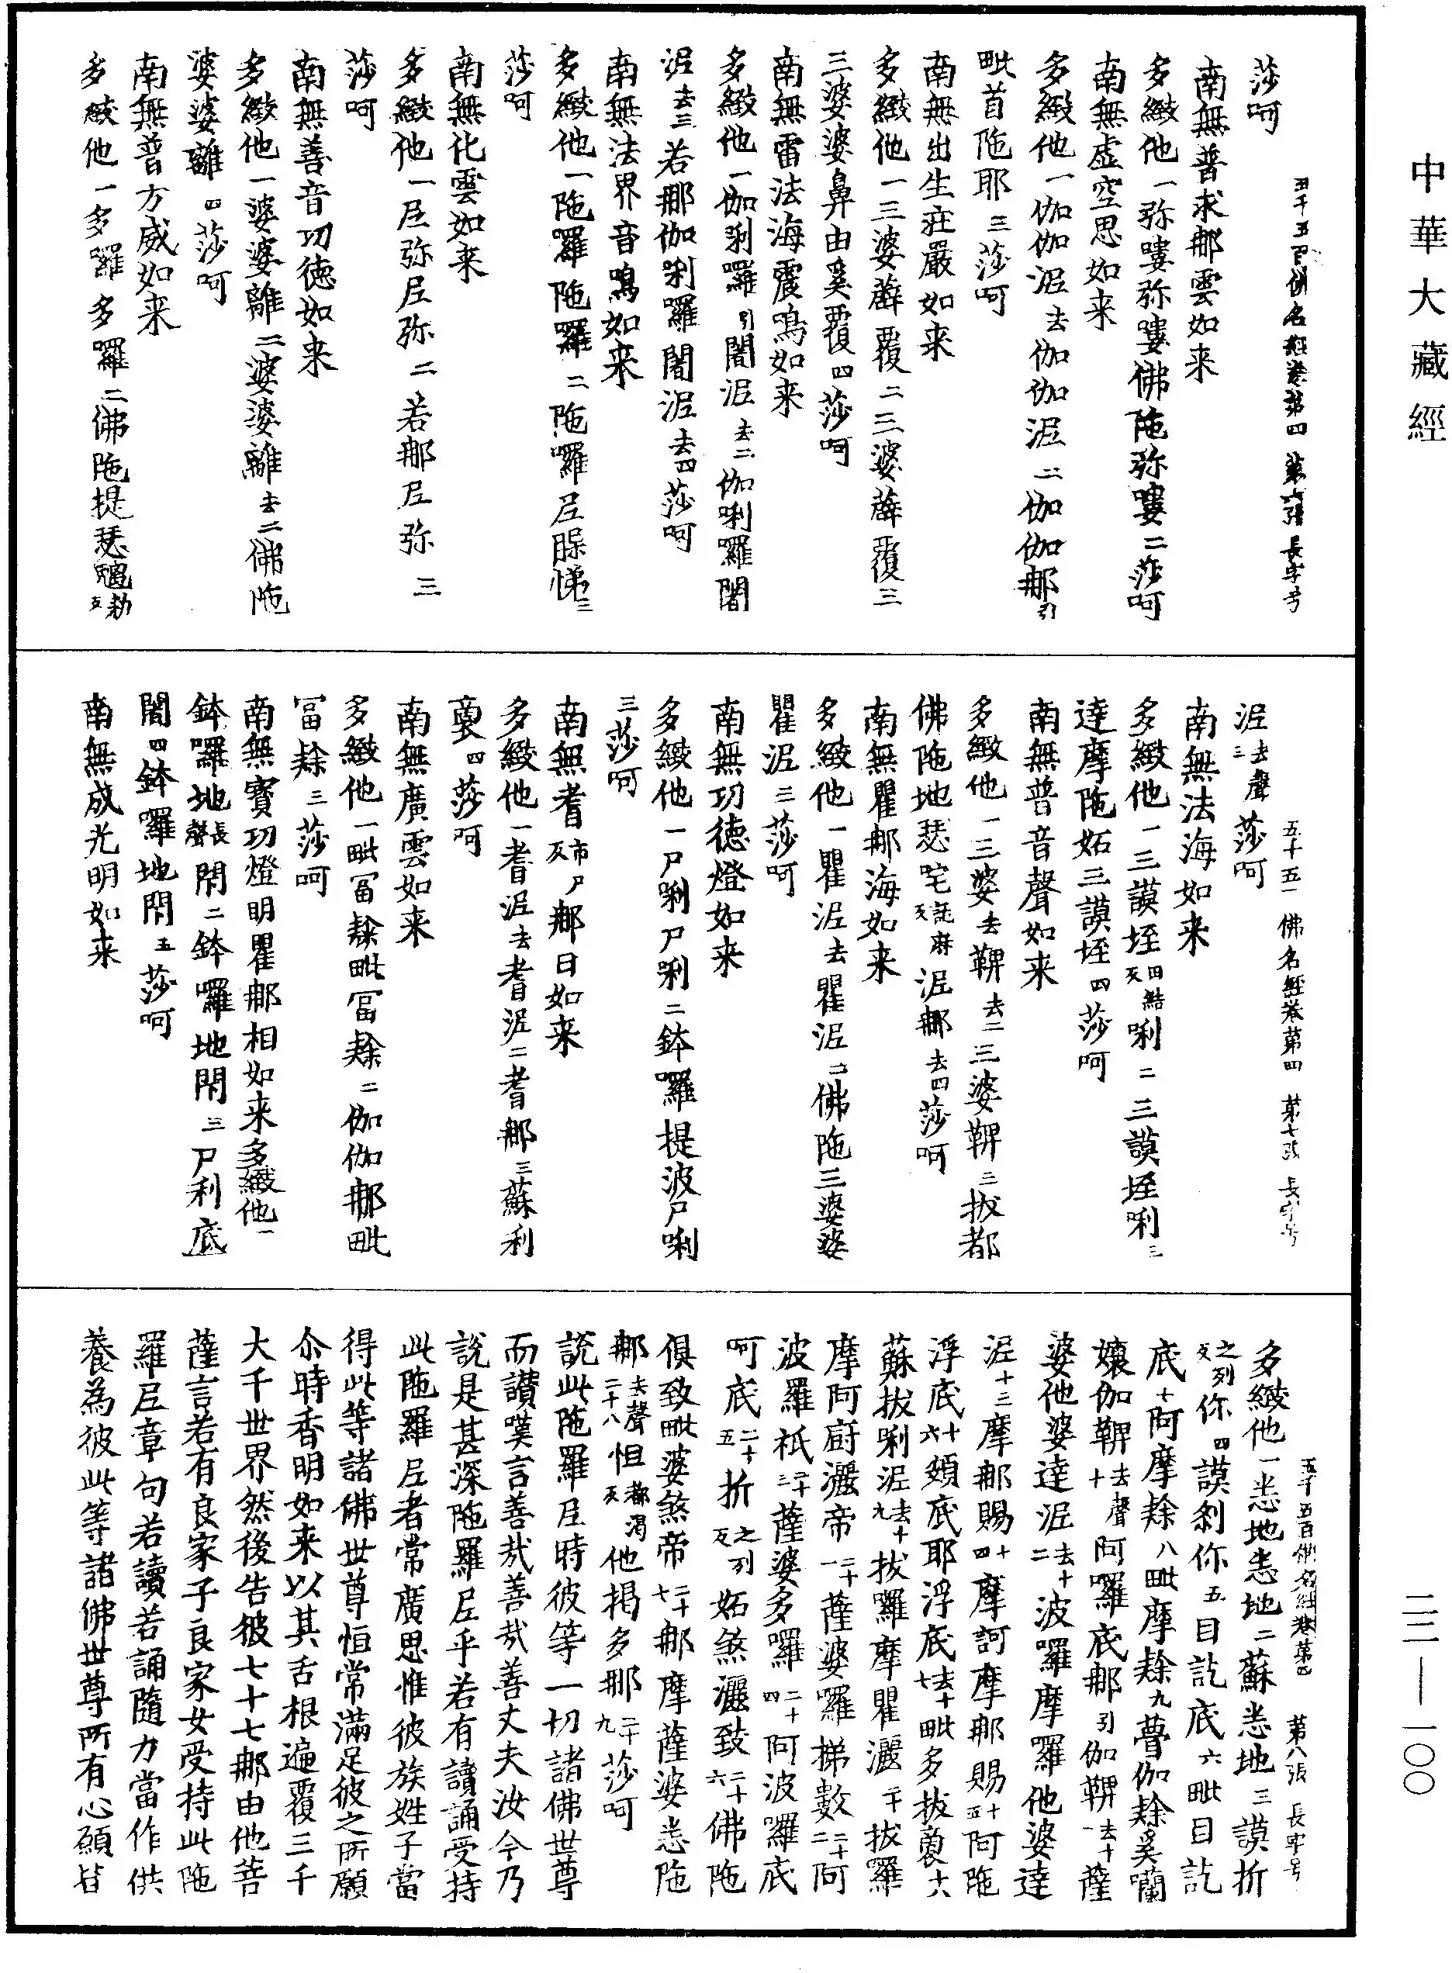 中華大藏經
二二—一〇〇
莎呵
五千五百佛名經卷第四 第六張 長字号
南無普求那雲如来
多緻他一弥嘍弥嘍佛陁弥嘍二莎呵
南無虚空思如来
多緻他一伽伽泥去伽伽泥二伽伽那引
毗首陁耶三莎呵
南無出生莊嚴如来
多緻他一三婆薜覆二三婆薜覆三
三婆婆鼻由奚覆四莎呵
南無雷法海震鳴如来
多緻他一伽唎囉引闍泥去二伽唎囉闍
泥去三若那伽唎囉闍泥去四莎呵
南無法界音鳴如来
多緻他一陁羅陁羅二陁囉尼䏶悌三
莎呵
南無化雲如来
多緻他一尼弥尼弥二若那尼弥三
莎呵
南無善音功德如来
多緻他一婆婆離二婆婆離去二佛陁
婆婆離四莎呵
南無普方威如来
多緻他一多囉多囉二佛陁提瑟
泥去聲三莎呵
五千五百佛名經卷第四 第七張 長字号
南無法海如来
多緻他一三謨垤田結反唎二三謨垤唎三
達摩陁妬三謨垤四莎呵
南無普音聲如来
多緻他一三婆去鞞去二三婆鞞三拔都
佛陁地瑟咤託麻反泥那去四莎呵
南無瞿那海如来
多緻他一瞿泥去瞿泥二佛陁三婆婆
瞿泥三莎呵
南無功德燈如来
多緻他一尸唎尸唎二鉢囉提波尸唎
三莎呵
南無耆市尸反那日如来
多緻他一耆泥去耆泥二耆那三蘇利
裒四莎呵
南無廣雲如来
多緻他一毗冨隸毗冨隸二伽伽那毗
冨隸三莎呵
南無寶功燈明瞿那相如来多緻他一
鉢囉地長聲閇二鉢囉地閇三尸利底
闍四鉢囉地閇五莎呵
南無成光明如来
五千五百佛名經卷第四 第八張 長字号
多緻他一悉地悉地二蘇悉地三謨折
之列反你四謨剎你五目訖底六毗目訖
底七阿摩隸八毗摩隸九瞢伽隸奚囒
孃伽鞞去聲十阿囉底那引伽鞞去十一薩
婆他婆達泥去十二波囉摩囉他婆達
泥十三摩那賜十四摩訶摩那賜十五阿陁
浮底十六頞底耶浮底去十七毗多拔裒十八
蘇拔唎泥去十九拔囉摩瞿灑二十拔羅
摩阿廚灑帝二十一薩婆囉梯數二十二阿
波羅祇二十三薩婆多囉二十四阿波羅底
呵底二十五折之列反妬煞灑致二十六佛陁
俱致毗婆煞帝二十七那摩薩婆悉陁
那去聲二十八怛都渴反他揭多那二十九莎呵
說此陁羅尼時彼等一切諸佛世尊
而讃嘆言善哉善哉善丈夫汝今乃
說是甚深陁羅尼乎若有讀誦受持
此陁羅尼者常廣思惟彼族姓子當
得此等諸佛世尊恒常滿足彼之所願
尒時香明如来以其舌根遍覆三千
大千世界然後告彼七十七那由他菩
薩言若有良家子良家女受持此陁
羅尼章句若讀若誦隨力當作供
養為彼此等諸佛世尊所有心願皆